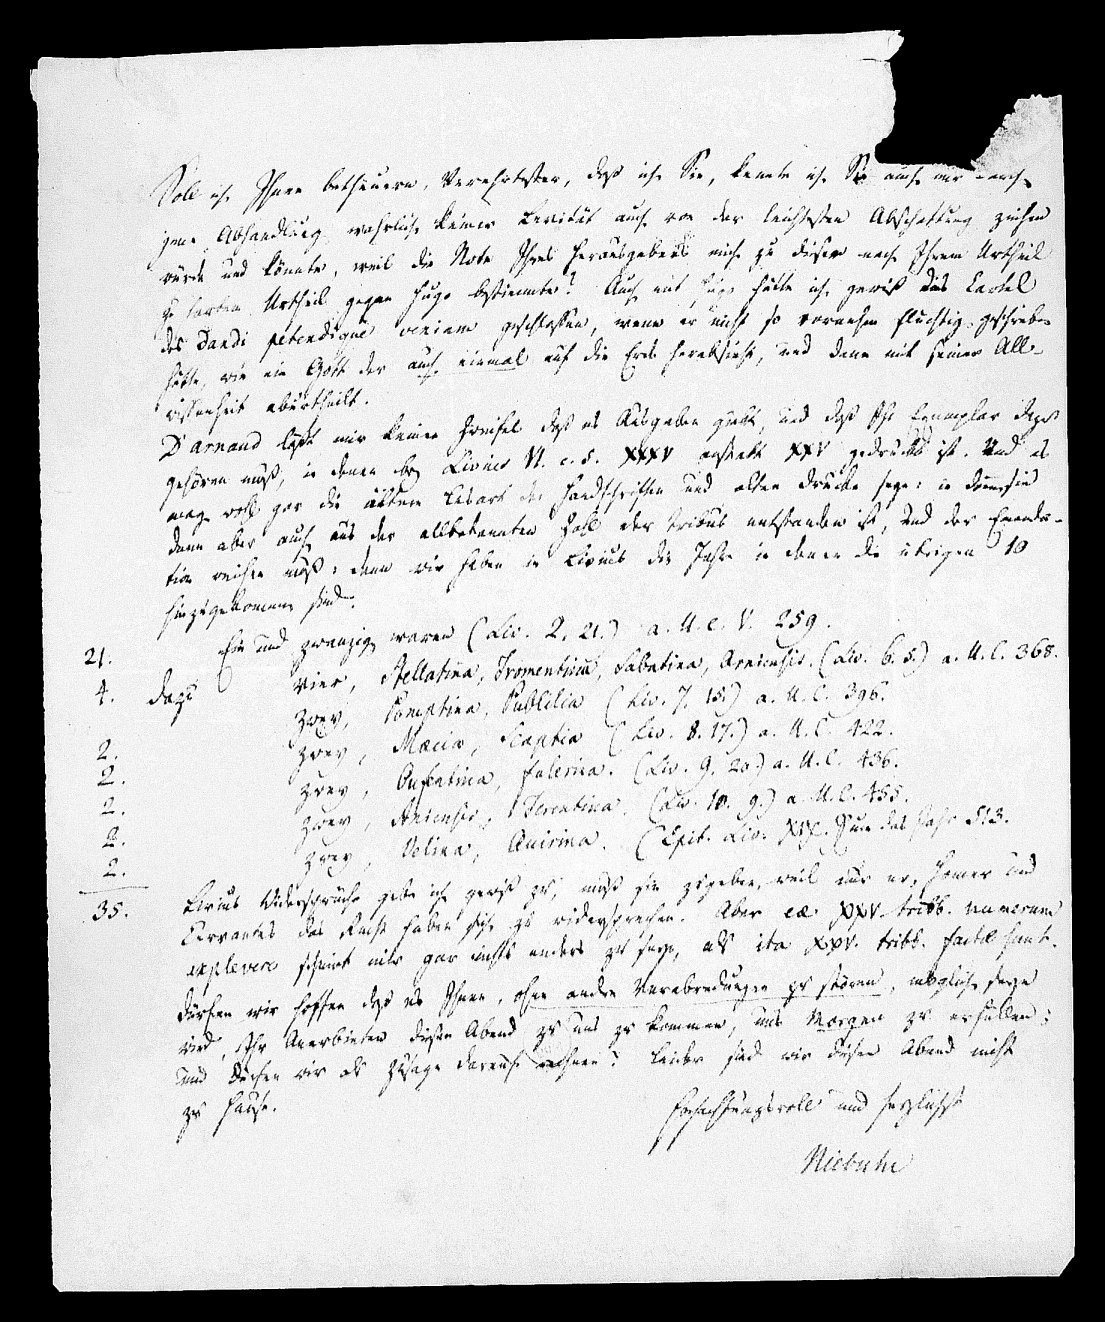 Soll ich Ihnen betheuern, Verehrtester, daß ich Sie, kennte ich Sie auch nur durch
jene Abhandlung, wahrlich keiner Levität auch von der leichtesten Abschattung zeihen
würde und könnte, weil die Note Ihres Herausgebers mich zu diesem nach Ihrem Urtheil
zu harten Urtheil gegen Hugo bestimmte? Auch mit Hugo hätte ich gewiß das Cartel
des Dandi petendique veniam geschlossen, wenn er nicht so vornehm flüchtig geschrieben
hätte, wie ein Gott der auch einmal auf die Erde herabsieht, und dann mit seiner All-
wissenheit aburtheilt.
D'Arnaud läßt mir keinen Zweifel daß es Ausgaben giebt, und daß Ihr Exemplar dazu
gehören muß, in denen bey Livius VI. c. 5. XXXV anstatt XXV gedruckt ist. Und es
mag wohl gar die ältere Lesart der Handschriften und alten Drucke seyn: in denen sie
dann aber auch aus der allbekannten Zahl der Tribus entstanden ist, und der Emenda-
tion weichen muß: denn wir haben in Livius die Jahre in denen die übrigen 10
hinzugekommen sind.
Ein und zwanzig waren (Liv. 2. 21.) a. U. c. V. 259.
21.
4. dazu vier, Stellatina, Tromentina, Sabatina, Arniensis. (Liv. 6. 5.) a. U. C. 368.
2. zwey, Pomptina, Publilia (Liv. 7. 15.) a. U. C. 396.
2. zwey, Mæcia, Scaptia (Liv. 8. 17.) a. U. C. 422.
2. zwey, Oufentina, Falerina. (Liv. 9. 20.) a. U. C. 436.
2. zwey, Aniensis, Terentina. (Liv. 10. 9.) a. U. C. 455.
2. zwey, Velina, Quirina. (Epit. Liv. XIX. Zum das Jahr 513.
35.
Livius Widersprüche gebe ich gewiß zu, muß sie zugeben, weil nur er, Homer und
Cervantes das Recht haben sich zu widersprechen. Aber eæ XXV tribb. numerum
explevere scheint mir gar nichts anders zu seyn, als ita XXV. tribb. factæ sunt.
Dürfen wir hoffen daß es Ihnen, ohne andre Verabredungen zu stören, möglich seyn
wird, Ihr Anerbieten diesen Abend zu uns zu kommen, uns Morgen zu erfüllen;
und dürfen wir als Zusage darauf rechnen? Leider sind wir diesen Abend nicht
zu Hause.
Hochachtungsvoll und herzlichst
Niebuhr